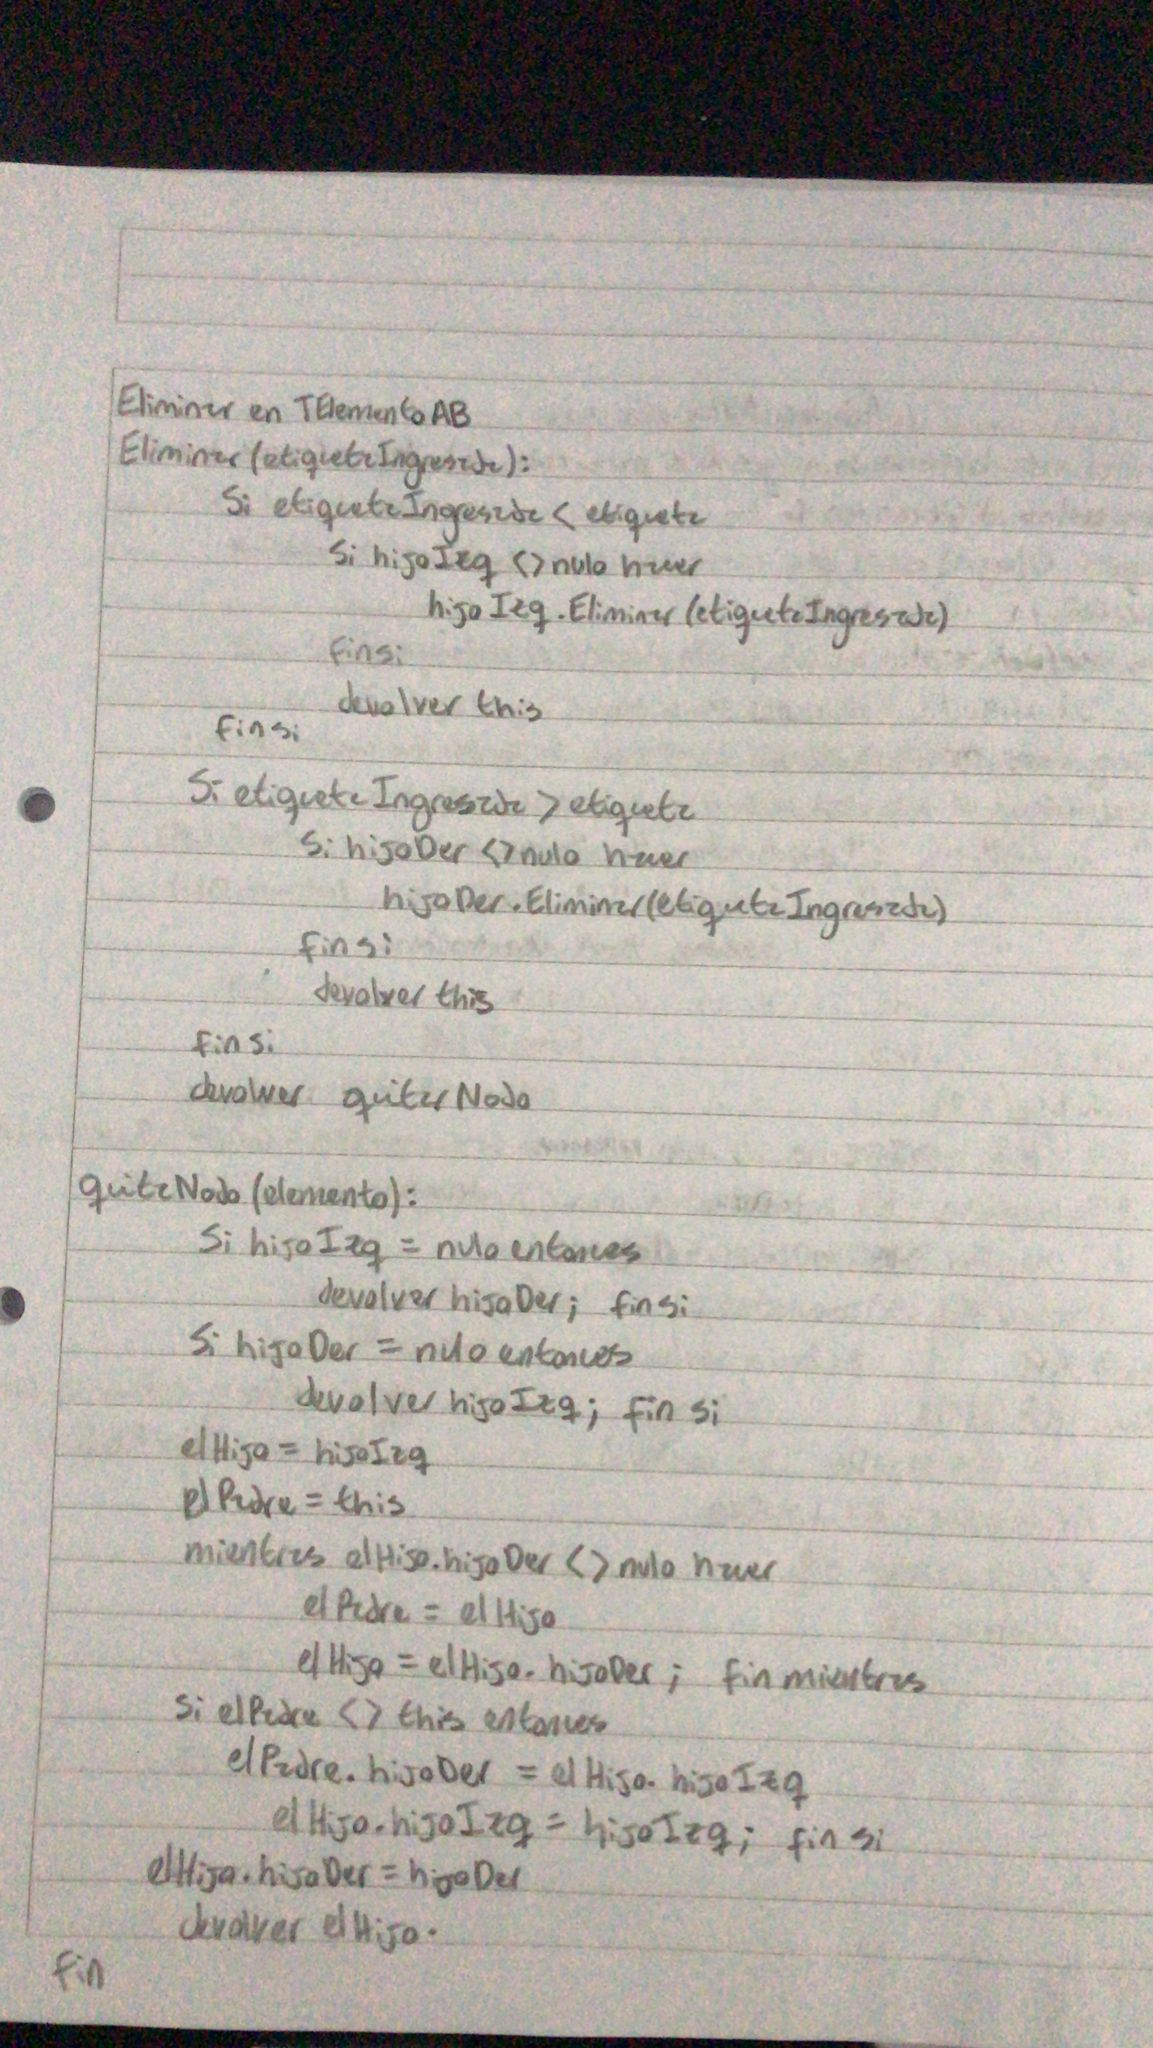 Eliminar en TElementoAB
Eliminar (etiquetaIngresada):
Si etiquetaIngresada < etiqueta
Si hijoIzq <> nulo hacer
hijoIzq.Eliminar (etiquetaIngresada)
finsi
devolver this
finsi
Si etiquetaIngresada > etiqueta
Si hijoDer <> nulo hacer
hijoDer.Eliminar(etiquetaIngresada)
finsi
devolver this
finsi
devolver quitarNodo
quitaNodo (elemento):
Si hijoIzq = nulo entonces
devolver hijoDer; finsi
Si hijoDer = nulo entonces
devolver hijoIzq; fin si
elHijo = hijoIzq
elPadre = this
mientras elHijo.hijoDer <> nulo hacer
elPadre = elHijo
elHijo = elHijo.hijoDer; fin mientras
Si elPadre <> this entonces
elPadre.hijoDer = elHijo.hijoIzq
elHijo.hijoIzq = hijoIzq; fin si
elHijo.hijoDer = hijoDer
devolver elHijo.
fin